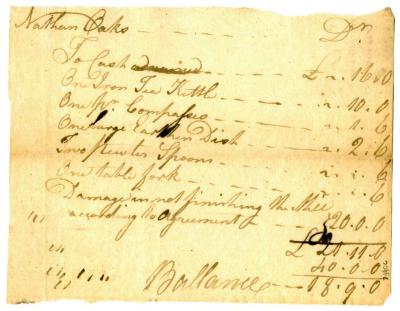 Nathan Oaks — — — Dr.
To Cash advanced — — — £ ". 16. 0
One Iron Tea Kettle — — ". 10. 0
One pr. Compasses — — ". 1. 6
One large Earthen Dish ". 2. 6
Two Pewter Spoons — — ". ". 6
One table fork — — — ". ". 6
Damage in not finishing the
according to Agreement — 20. 0. 0
£ 21. 11. 0
40. 0. 0
Ballance — 18. 9. 0